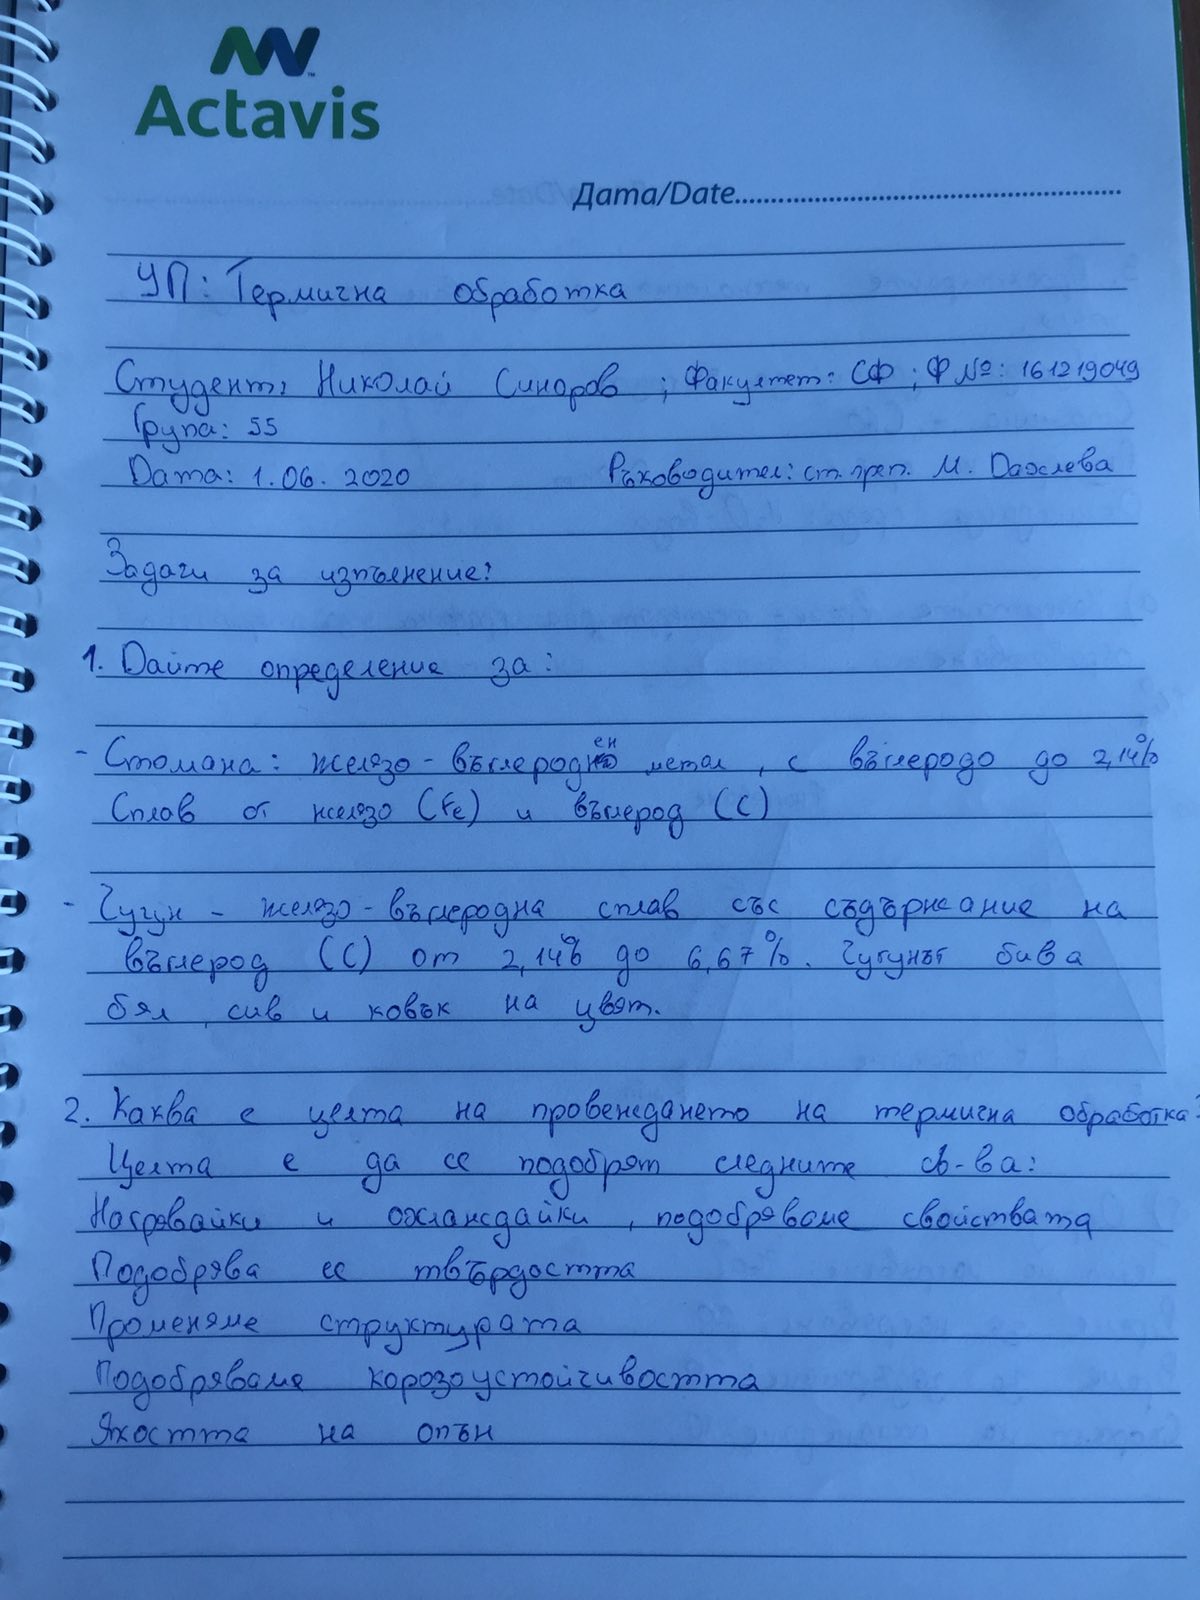 Actavis
Дата/Date
УП: Термична обработка
Студент: Николай Синоров ; Факултет: СФ ; Ф№: 161219049
Група: 55
Дата: 1.06.2020 Ръководител: ст. преп. М.
Задачи за изпълнение:
1. Дайте определение за:
- Стомана: желязо-въглероден метал, с въглеродо до 2,14%
Сплав от желязо (Fe) и въглерод (C)
- Чугун - желязо-въглеродна сплав със съдържание на
въглерод (C) от 2,14% до 6,67%. Чугунът бива
бял, сив и ковък на цвят.
2. Каква е целта на провеждането на термична обработка?
Целта е да се подобрят следните св-ва:
Нагрявайки и охлаждайки, подобряваме свойствата
Подобрява се твърдостта
Променяме структурата
Подобряваме корозоустойчивостта
Якостта на опън